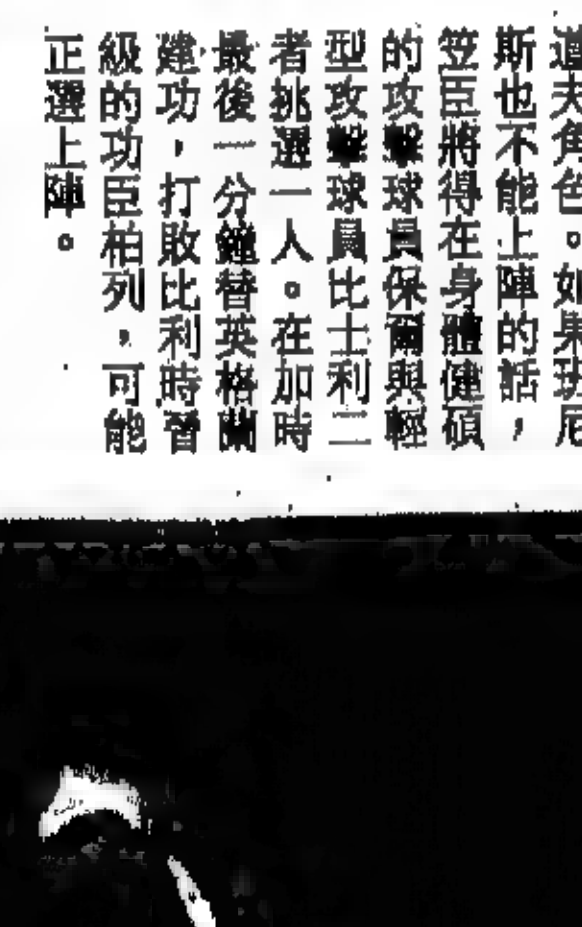 道夫角色。如果班尼
斯也不能上陣的話，
笠臣將得在身體健碩
的攻擊球員保爾與輕
型攻擊球員比士利二
者挑選一人。在加時
最後一分鐘替英格蘭
建功，打敗比利時晉
級的功臣柏列，可能
正選上陣。